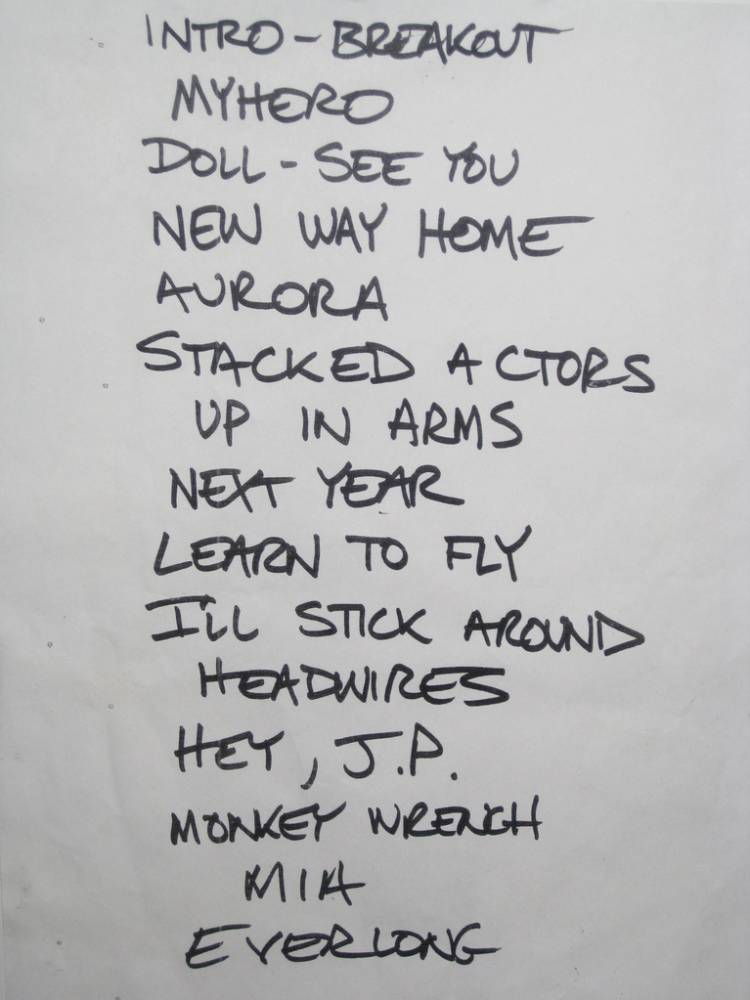 INTRO - BREAKOUT
MY HERO
DOLL - SEE YOU
NEW WAY HOME
AURORA
STACKED ACTORS
UP IN ARMS
NEXT YEAR
LEARN TO FLY
I'LL STICK AROUND
HEADWIRES
HEY, J.P.
MONKEY WRENCH
MIA
EVERLONG